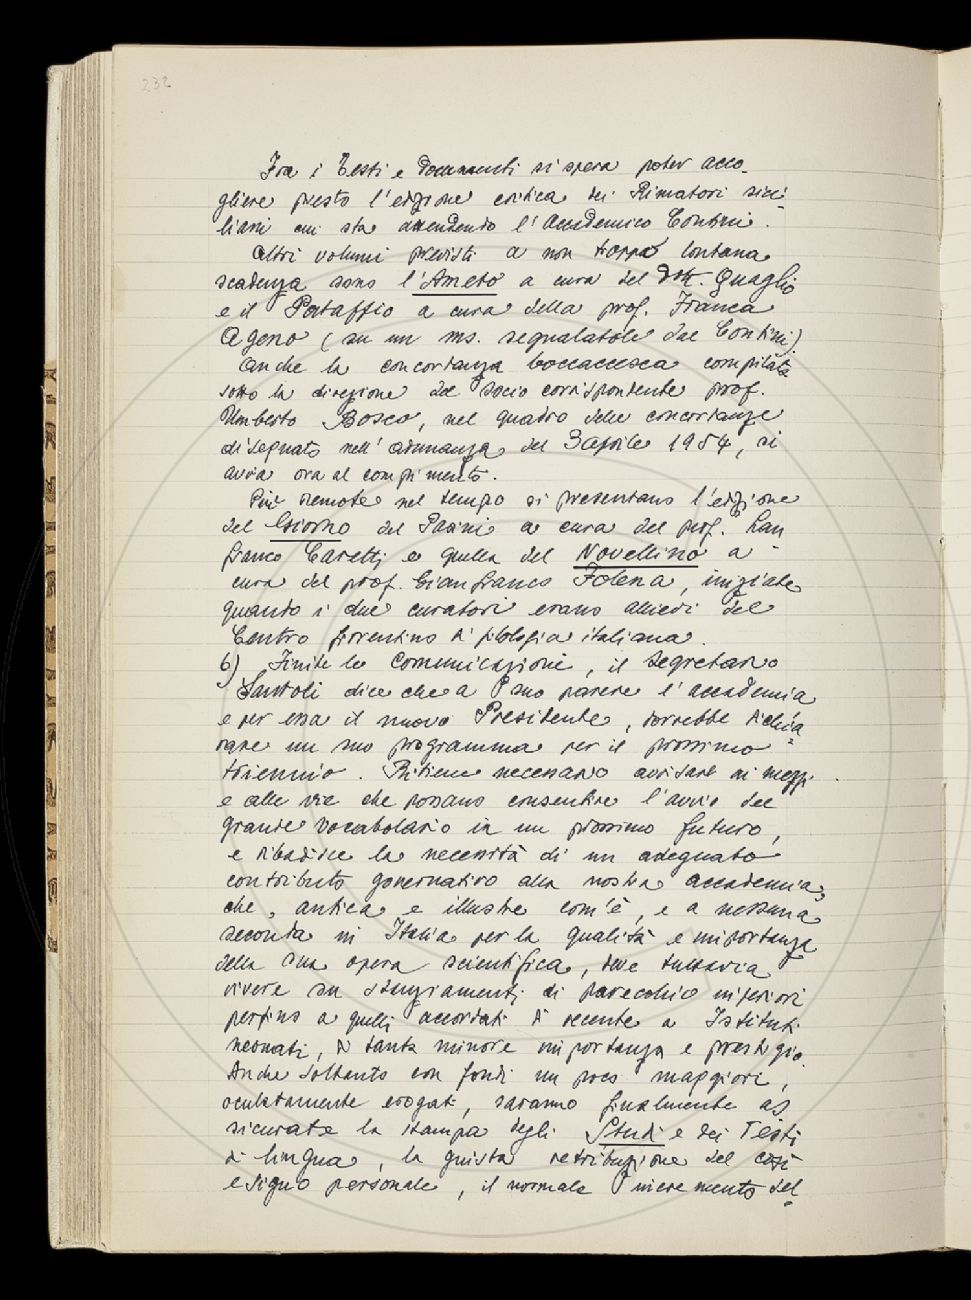 232
Fra i Testi e Documenti si spera poter acco-
gliere presto l'edizione critica dei Rimatori sici-
liani cui sta attendendo l'Accademico Contini.
Altri volumi previsti a non troppo lontana
scadenza sono l'Ameto a cura del dott. Quaglio
e il Pataffio a cura della prof. Franca
Ageno (su un ms. segnalatole dal Contini)
Anche la concordanza boccaccesca compilata
sotto la direzione del socio corrispondente prof.
Umberto Bosco, nel quadro delle concordanze
disegnato nell'adunanza del 3 aprile 1954, si
avvia ora al compimento.
Più remote nel tempo si presentano l'edizione
del Giorno del Parini a cura del prof. Lan-
franco Caretti e quella del Novellino a
cura del prof. Gianfranco Folena, iniziate
quando i due curatori erano allievi del
Centro fiorentino di filologia italiana.
6) Finite le comunicazioni, il segretario
Santoli dice che a suo parere l'accademia
e per essa il nuovo Presidente, dovrebbe dichia-
rare un suo programma per il prossimo
triennio. Ritiene necessario avvisare ai mezzi
e alle vie che possano consentire l'avvio del
grande vocabolario in un prossimo futuro,
e ribadisce la necessità di un adeguato
contributo governativo alla nostra accademia,
che, antica e illustre com'è, e a nessuna
seconda in Italia per la qualità e importanza
della sua opera scientifica, deve tuttavia
vivere su stanziamenti di parecchio inferiori
perfino a quelli accordati di recente a Istituti
neonati, di tanta minore importanza e prestigio.
Anche soltanto con fondi un poco maggiori,
oculatamente erogati, saranno finalmente as
sicurate la stampa degli Studi e dei Testi
di lingua, la giusta retribuzione del così
esiguo personale, il normale incremento del-